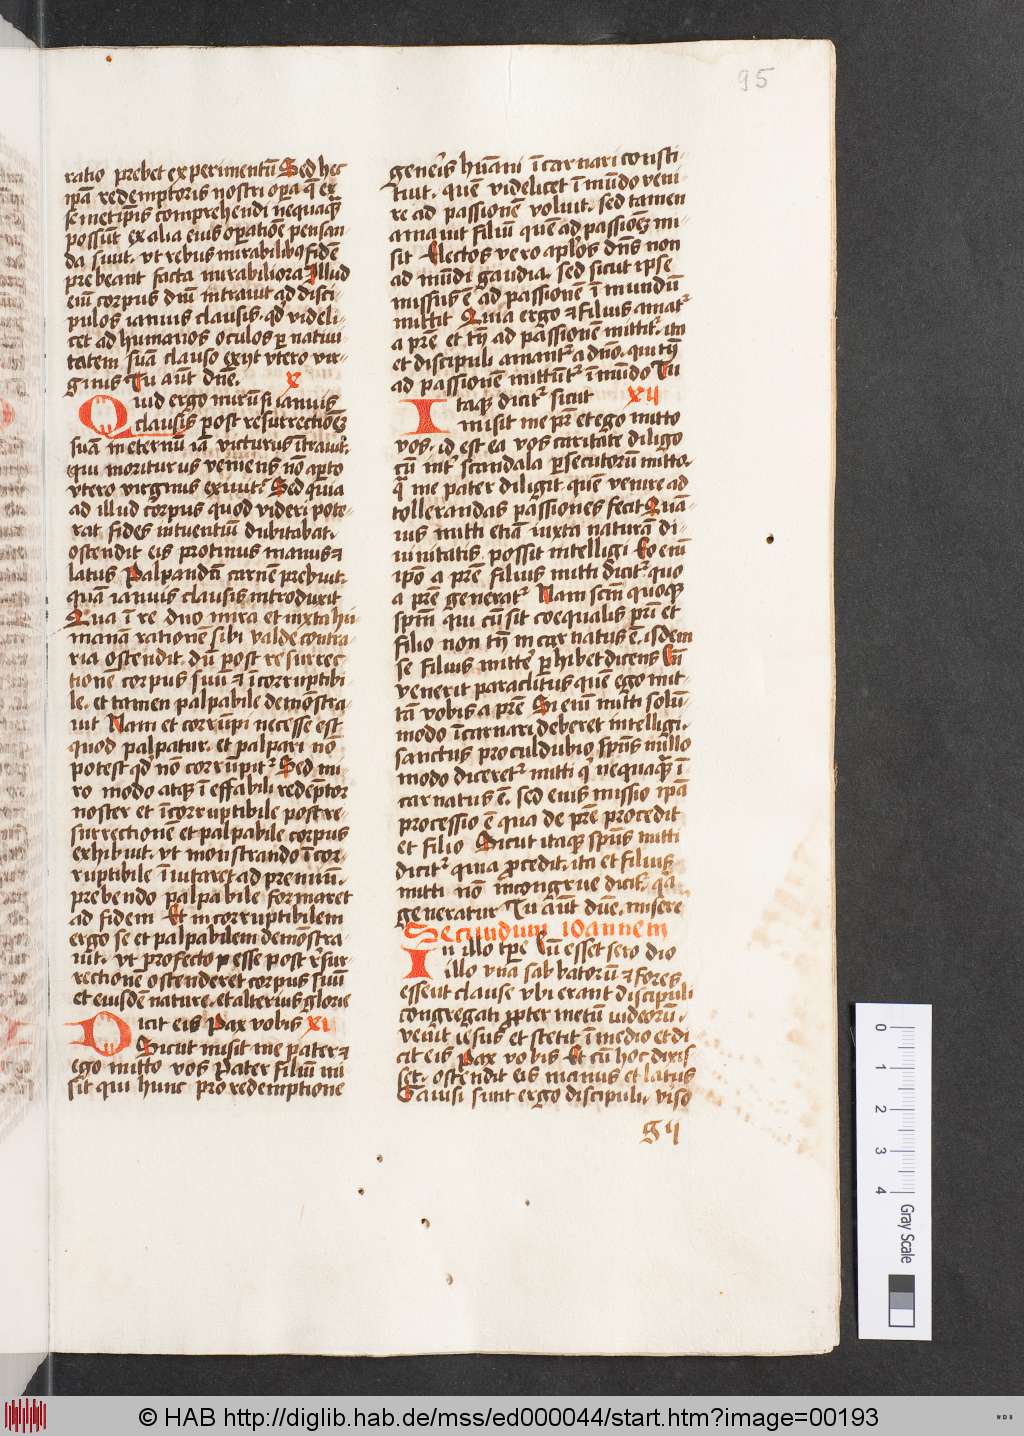 95
ratio prebet experimentū Sed hec
ip̄a redemptoris nostri oꝑa q̄ ex
semetip̄is comprehendi nequaq̄
possunt ex alia eius oꝑatiōe pensan-
da sunt. vt rebus mirabilibꝰ fidē
prebeant facta mirabiliora Illud
eiī corpus dn̄i intrauit ad disci-
pulos ianuis clausis. qd̛ videli-
cet ad humanos oculos ꝑ natiui
tatem suā clauso exijt vtero vir-
ginis Tu aūt dn̄e. x
Quid ergo mirū si ianuis
clausis post resurrectiōeꝫ
suā in eternū iā victurus ītrauit.
qui moriturus veniens nō aꝑto
vtero virginis exiuit. Sed quia
ad illud corpus quod videri pote-
rat fides intuentiū dubitabat.
ostendit eis protinus manus ⁊
latus Palpandā carnē prebuit.
quā ianuis clausis introduxit
Qua ī re duo mira et iuxta hu
manā rationē sibi valde contra-
ria ostendit. dū post resurrec
tionē corpus suū ⁊ īcorruptibi-
le. et tamen palpabile demōstra-
uit Nam et corrūpi necesse est
quod palpatur. et palpari nō
potest qd̛ nō corrūpit᷑ Sed mi-
ro modo atqꝫ īeffabili redēptor
noster et īcorruptibile post re-
surrectionē et palpabile corpus
exhibuit. vt monstrando īcor-
ruptibile īuitaret ad premiū.
prebendo palpabile formaret
ad fidem Et incorruptibilem
ergo se et palpabilem demōstra-
uit. vt profecto ꝑ esse post resur-
rectionē ostenderet corpus suū
et eiusdē nature. et alterius glorie
Dicit eis Pax vobis xi
Sicut misit me pater ⁊
ego mitto vos Pater filiū mi
sit qui hunc pro redemptione
generis hūani īcarnari consti-
tuit. quē videlicet ī mūdo veni-
re ad passionē voluit. sed tamen
amauit filiū quē ad passionēꝫ mi-
sit Electos vero apl̄os dn̄s non
ad mūdi gaudia. sed sicut ipse
missus ē ad passionē ī mundū
mittit Quia ergo ⁊ filius amat᷑
a pr̄e et tn̄ ad passionē mittit᷑. ita
et discipuli amant᷑ a dn̄o. qui tn̄
ad passionē mittunt᷑ ī mūdo Tu
Itaqꝫ dicit᷑ sicut xij
misit me pr̄ et ego mitto
vos. id est ea vos caritate diligo
cū int̓ scandala ꝑsecutorū mitto.
q̄ me pater diligit. quē venire ad
tollerandas passiones fecit Quā-
uis mitti etiā iuxta naturā di-
uinitatis possit intelligi Eo eni
ip̄o a pr̄e filius mitti dicit᷑ quo
a pr̄e generat᷑ Nam sc̄m quoqꝫ
sp̄m qui cū sit coequalis pr̄i et
filio non tn̄ incarnatus ē. isdem
se filius mitte᷑ ꝑhibet dicens Cū
venerit paraclitus quē ego mit-
tā vobis a pr̄e Si eni mitti solū-
modo īcarnari deberet intelligi.
sanctus proculdubio sp̄us nullo
modo diceret᷑ mitti q̄ nequaq̄ ī
carnatus ē. sed eius missio ip̄a
processio ē qua de pr̄e procedit
et filio Sicut itaqꝫ sp̄us mitti
dicit᷑ quia ꝓcedit. ita et filius
mitti nō incongrue dicit᷑ qa
generatur Tu aūt dn̄e. misere
Secundum ioannem
In illo tp̄e Cū esset sero die
illo vna sabbatorū ⁊ fores
essent clause vbi erant discipuli
congregati ꝓpter metū iudeorū.
venit iesus et stetit ī medio et di
cit eis Pax vobis Et cū hoc dixis
set. ostendit eis manus et latus
Gauisi sunt ergo discipuli. viso
g ij
0
1
2
3
4
Gray Scale
© HAB http://diglib.hab.de/mss/ed000044/start.htm?image=00193